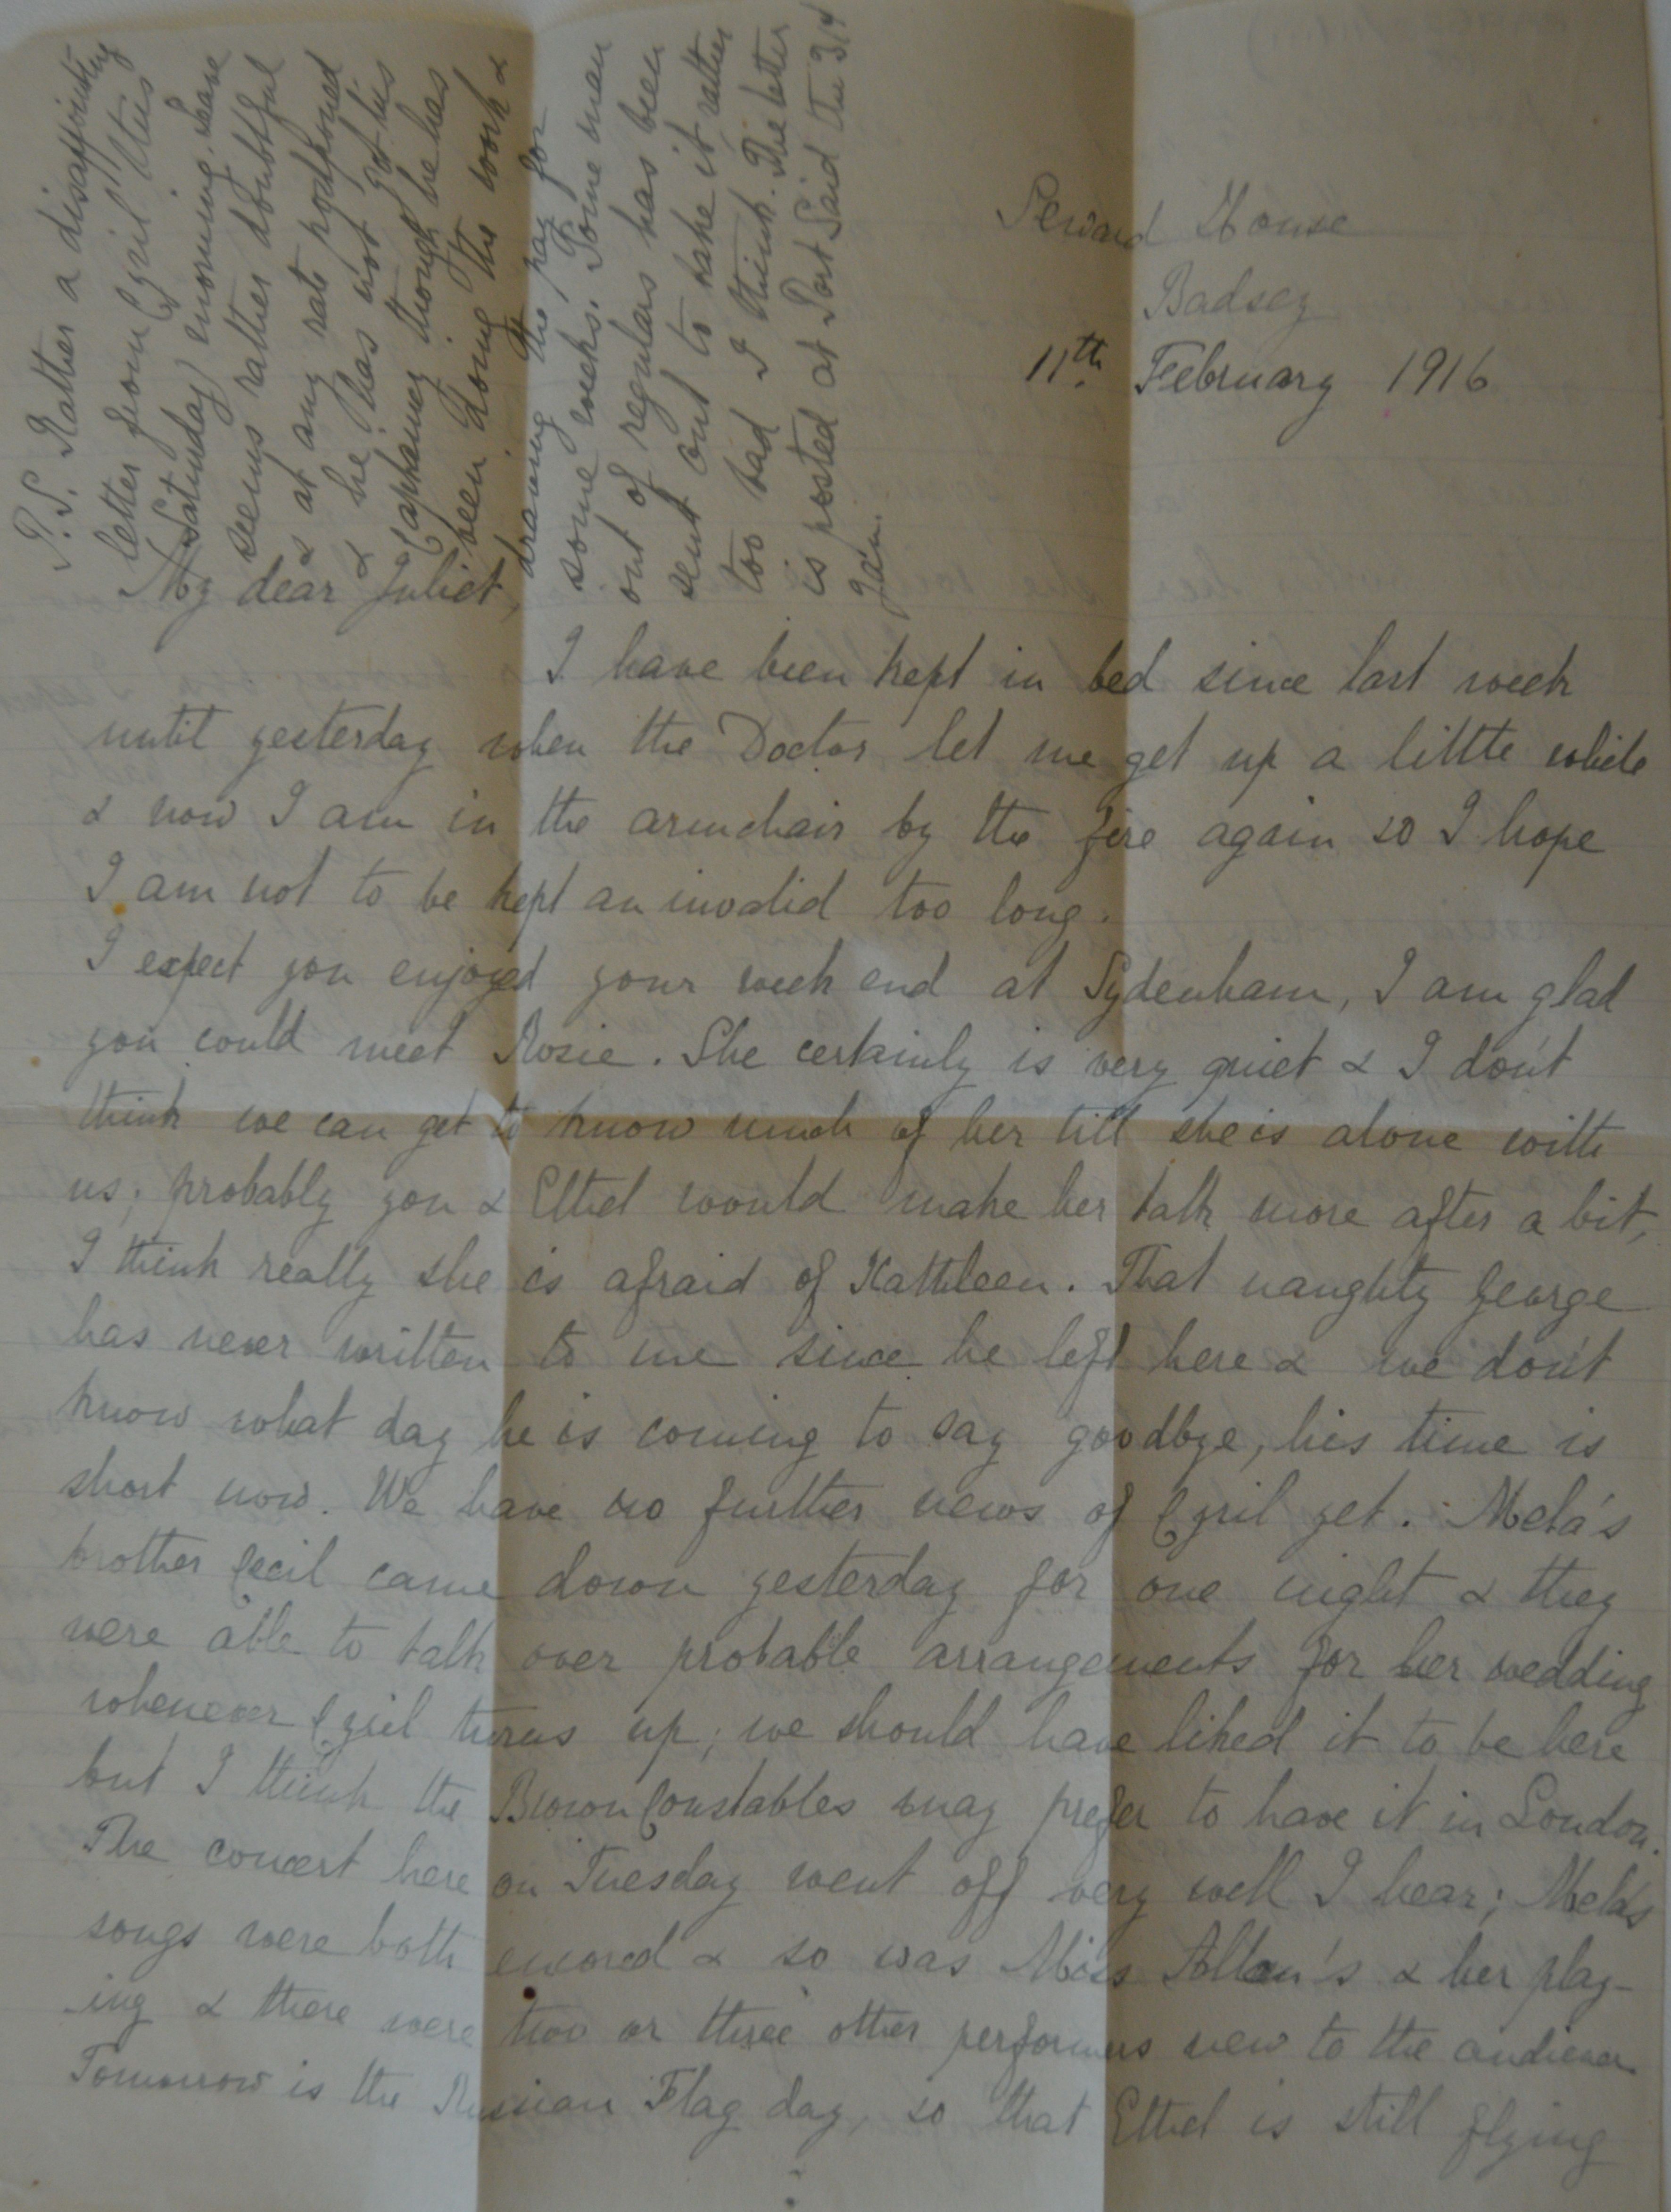 Seward House
Badsey
11th February 1916
My dear Juliet,
I have been kept in bed since last week
until yesterday when the Doctor let me get up a little while
& now I am in the armchair by the fire again so I hope
I am not to be kept an invalid too long.
I expect you enjoyed your week end at Sydenham, I am glad
you could meet Rosie. She certainly is very quiet & I don't
think we can get to know much of her till she is alone with
us; probably you & Ethel would make her talk more after a bit,
I think really she is afraid of Kathleen. That naughty George
has never written to me since he left here & we don't
know what day he is coming to say goodbye, his time is
short now. We have no further news of Cyril yet. Mela's
brother Cecil came down yesterday for one night & they
were able to talk over probable arrangements for her wedding
whenever Cyril turns up; we should have liked it to be here
but I think the Brown Constables may prefer to have it in London.
The concert here on Tuesday went off very well I hear; Mela's
songs were both encored & so was Miss Allan's & her play-
ing & there were two or three other performers new to the audience.
Tomorrow is the Russian Flag day, so that Ethel is still flying
P.S. Rather a disappointing
letter from Cyril this
(Saturday) morning. Leave
seems rather doubtful
& at any rate postponed
& he has not got his
Captaincy though he has
been doing the work &
drawing the pay for
some weeks. Some man
out of regulars has been
sent out to take it rather
too bad I think. The letter
is posted at Port Said the 31st
Jan.